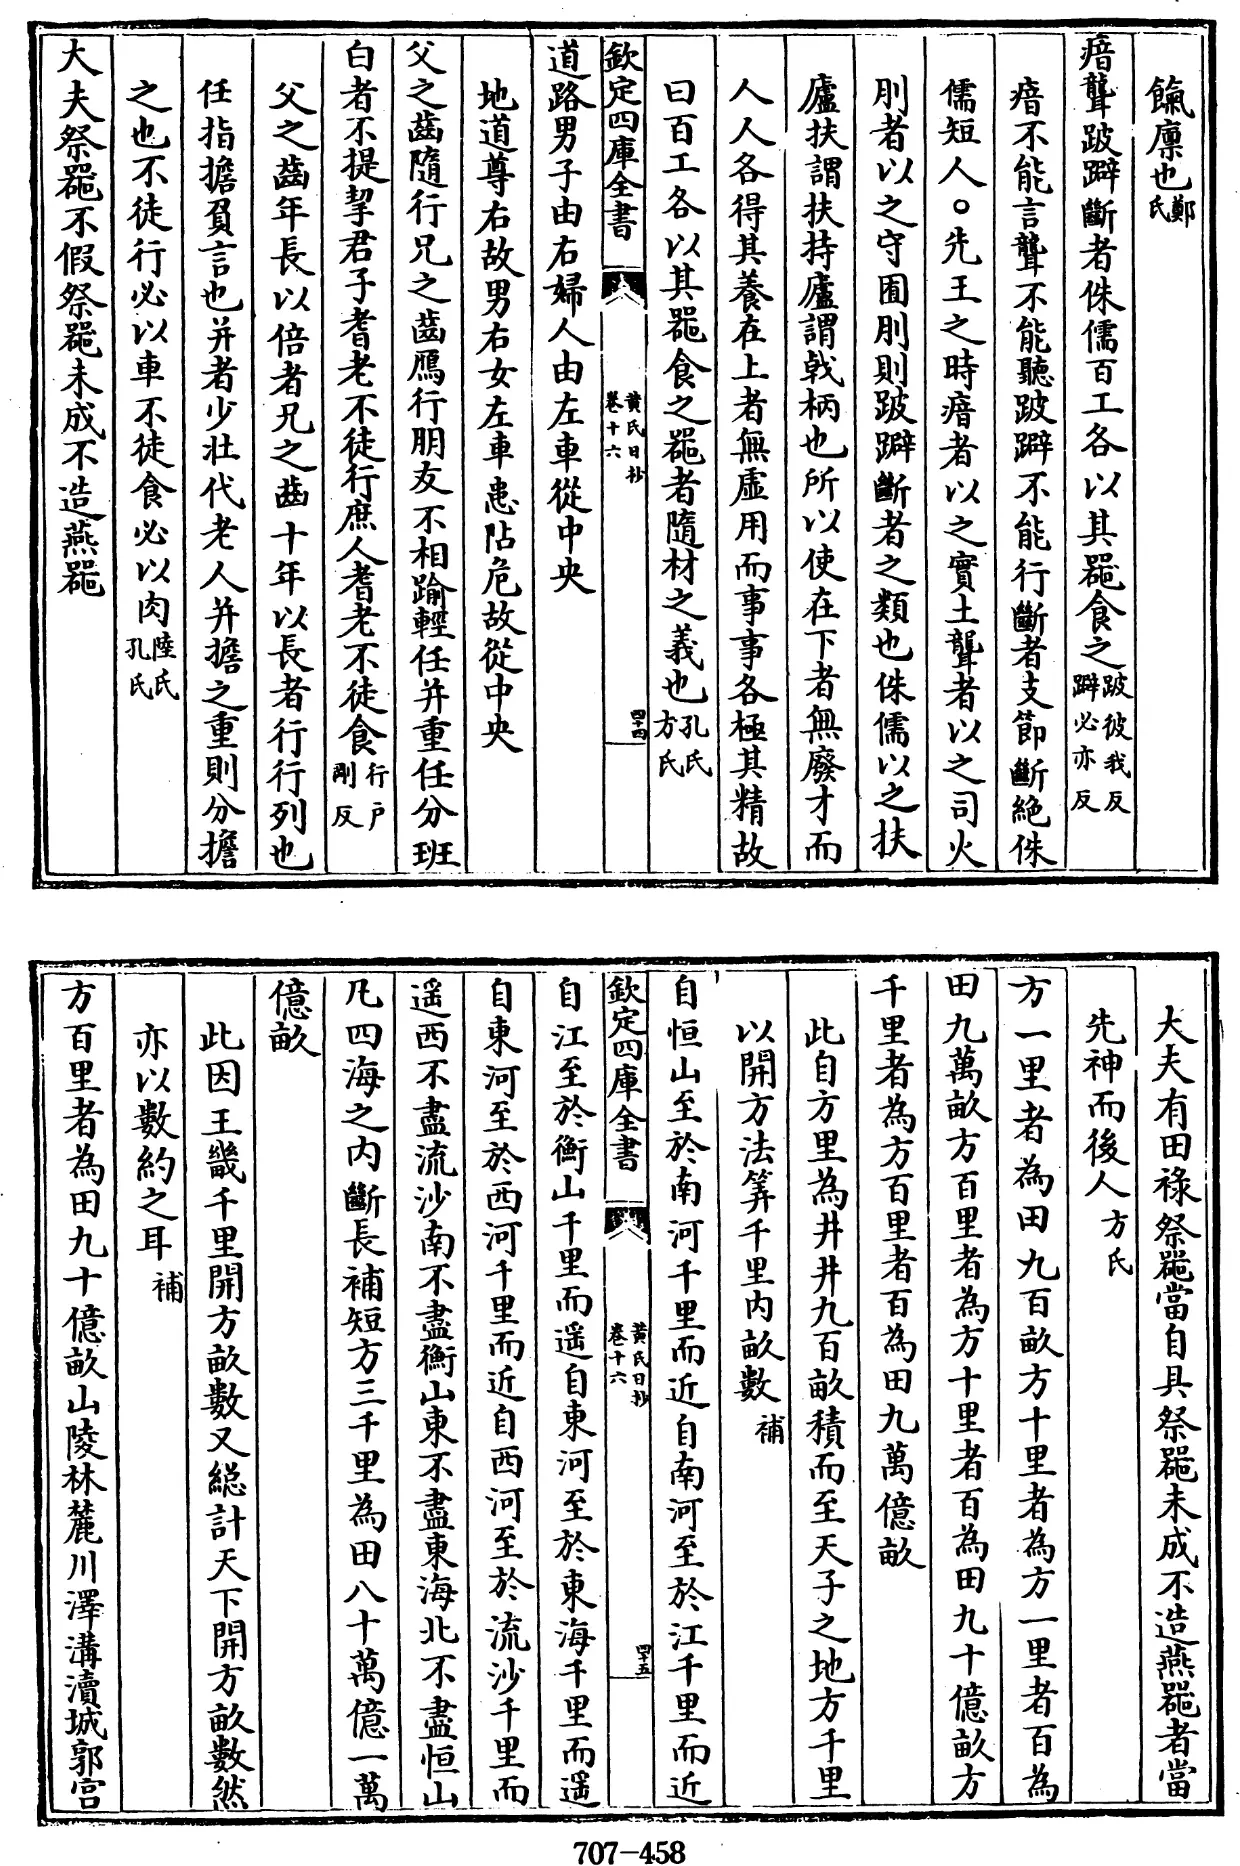 餼廪也鄭氏
瘖聾跛躃斷者侏儒百工各以其器食之跛彼我反躃必亦反
瘖不能言聾不能聽跛躃不能行斷者支節斷絶侏
儒短人○先王之時瘖者以之實土聾者以之司火
刖者以之守囿刖則跛躃斷者之類也侏儒以之扶
廬扶謂扶持廬謂戟柄也所以使在下者無廢才而
人人各得其養在上者無虚用而事事各極其精故
曰百工各以其器食之器者隨材之義也孔氏方氏
欽定四庫全書
黄氏日抄
卷十六
四十四
道路男子由右婦人由左車從中央
地道尊右故男右女左車患阽危故從中央
父之齒隨行兄之齒鴈行朋友不相踰輕任并重任分班
白者不提挈君子耆老不徒行庶人耆老不徒食行户剛反
父之齒年長以倍者兄之齒十年以長者行行列也
任指擔負言也并者少壯代老人并擔之重則分擔
之也不徒行必以車不徒食必以肉陸氏孔氏
大夫祭器不假祭器未成不造燕器
大夫有田禄祭器當自具祭器未成不造燕器者當
先神而後人方氏
方一里者為田九百畝方十里者為方一里者百為
田九萬畝方百里者為方十里者百為田九十億畝方
千里者為方百里者百為田九萬億畝
此自方里為井井九百畝積而至天子之地方千里
以開方法筭千里内畝數補
自恒山至於南河千里而近自南河至於江千里而近
欽定四庫全書
黄氏日抄
卷十六
四十五
自江至於衡山千里而遥自東河至於東海千里而遥
自東河至於西河千里而近自西河至於流沙千里而
遥西不盡流沙南不盡衡山東不盡東海北不盡恒山
凡四海之内斷長補短方三千里為田八十萬億一萬
億畝
此因王畿千里開方畝數又總計天下開方畝數然
亦以數約之耳補
方百里者為田九十億畝山陵林麓川澤溝瀆城郭宫
707-458